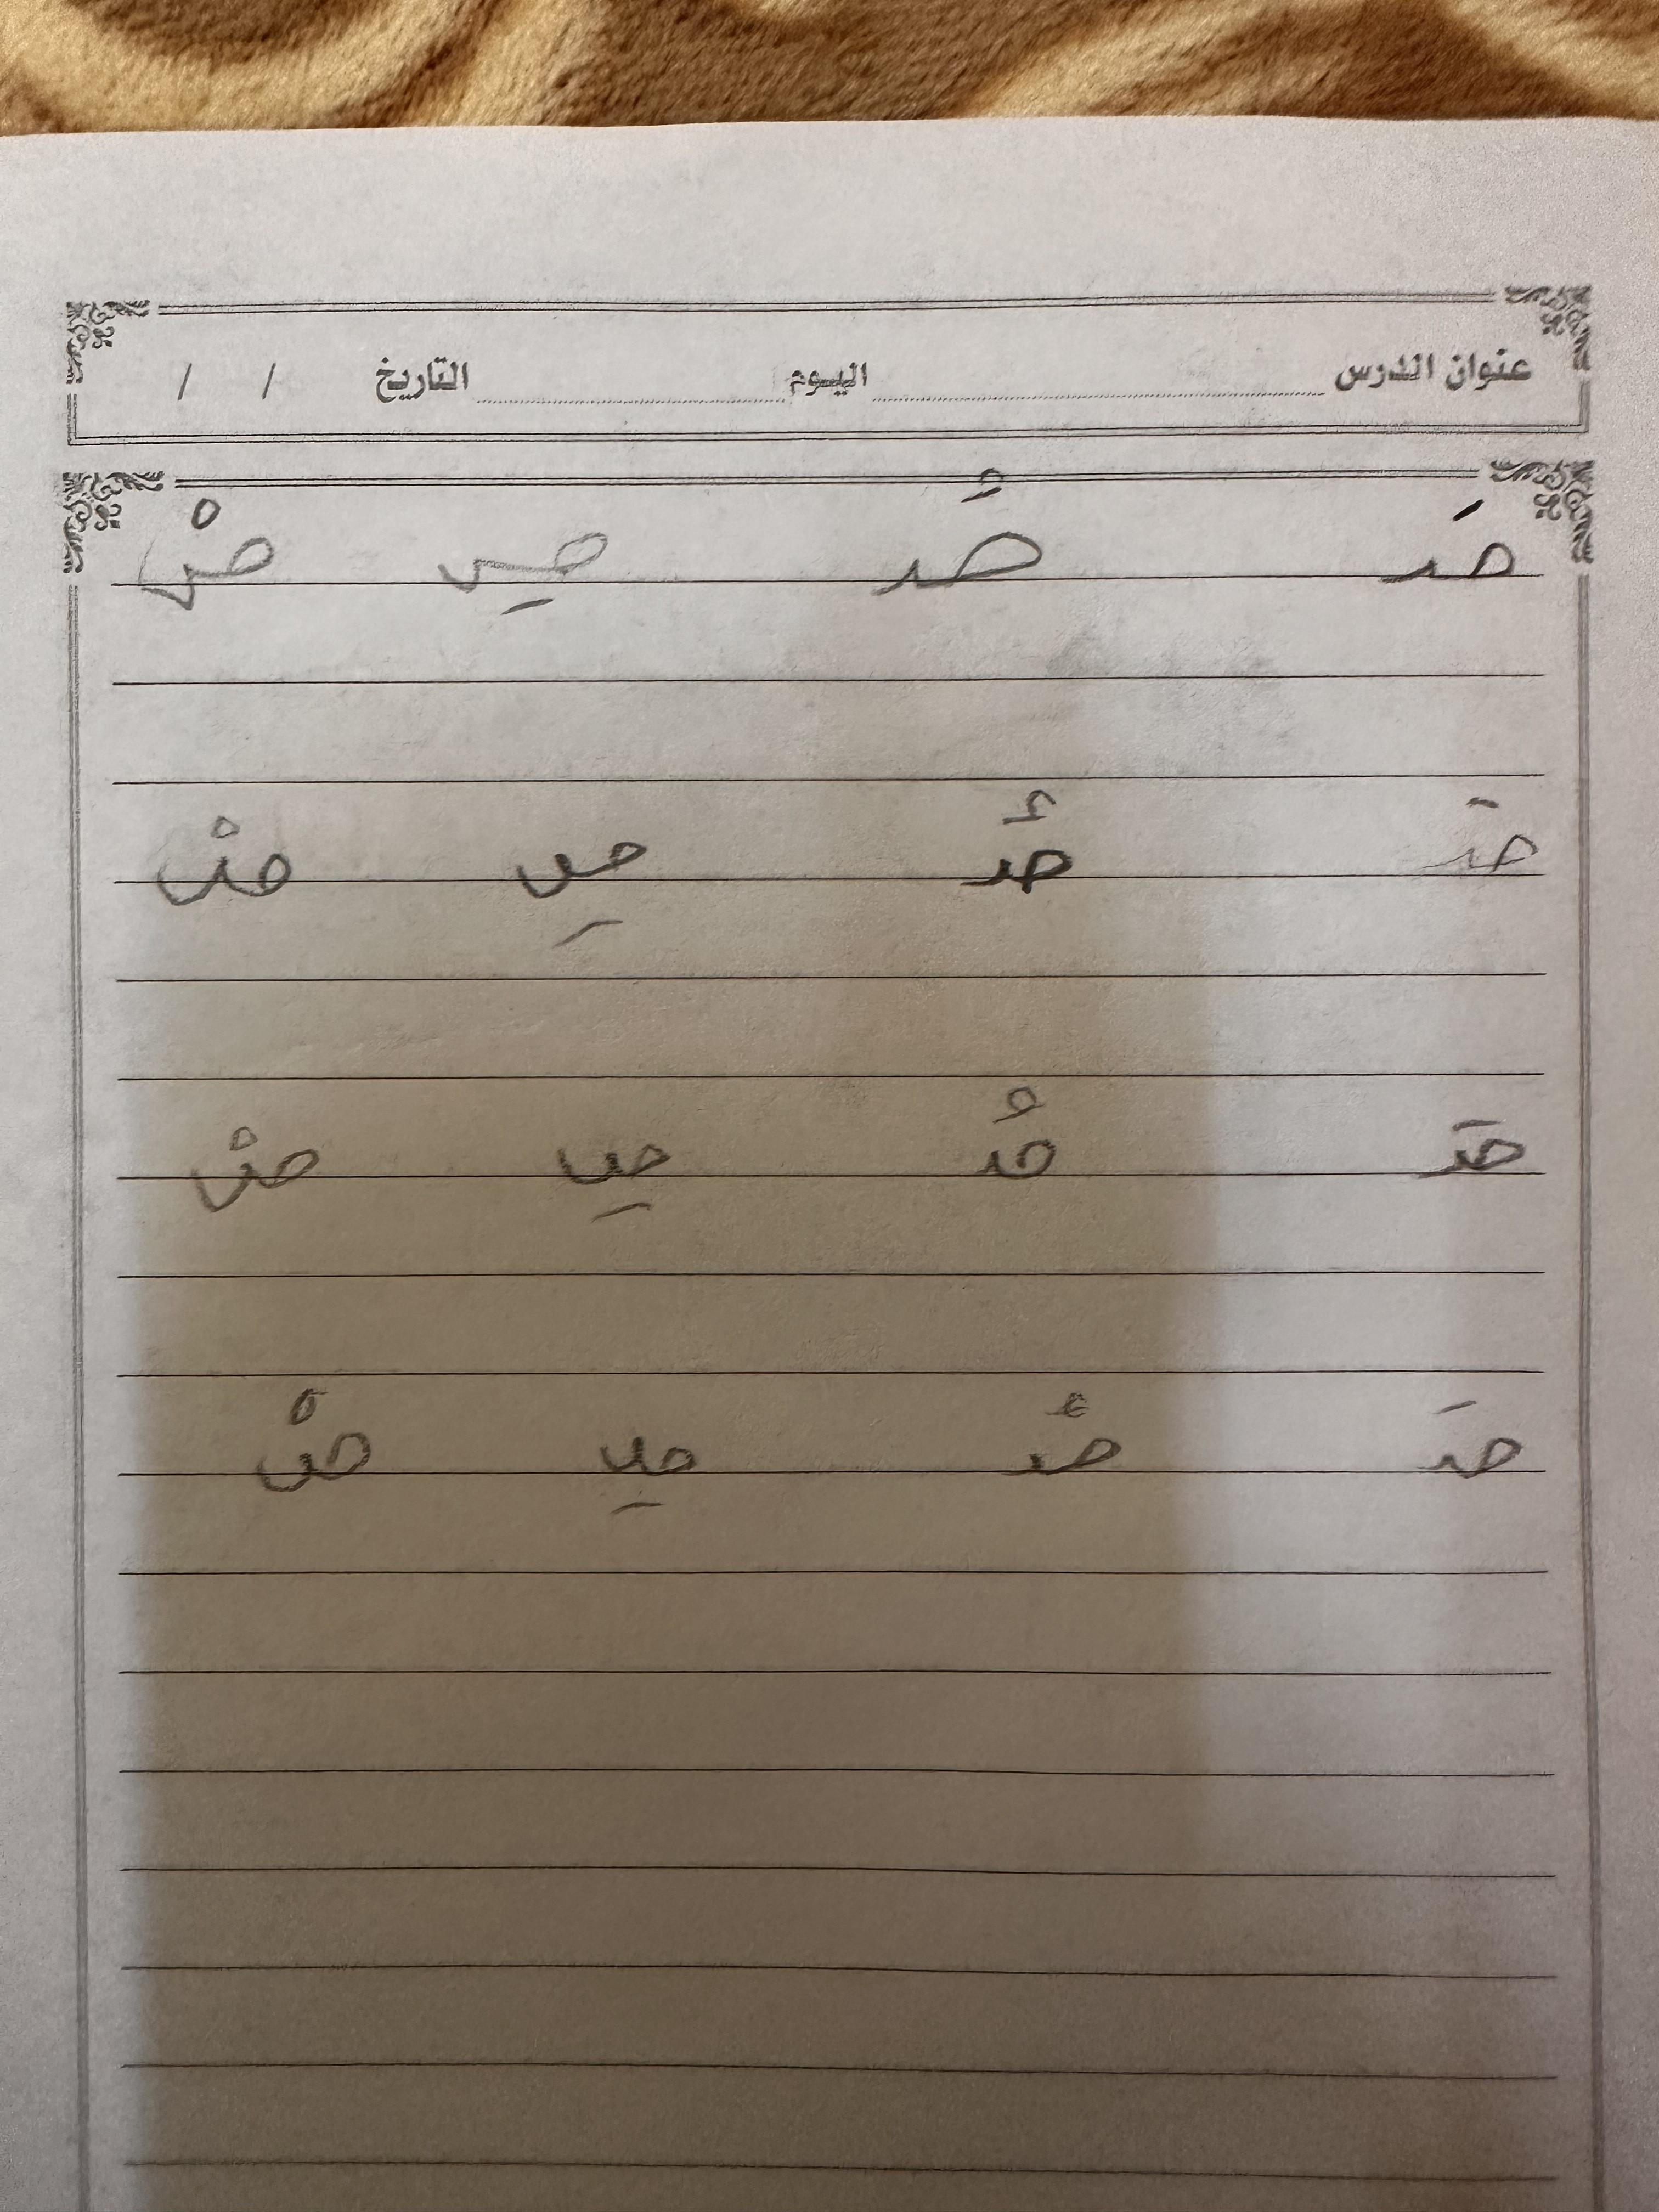 عنوان الدرس اليوم التاريخ / /
صَـ صُـ صِـ صْ
صَـ صُـ صِـ صْ
صَـ صُـ صِـ صْ
صَـ صُـ صِـ صْ